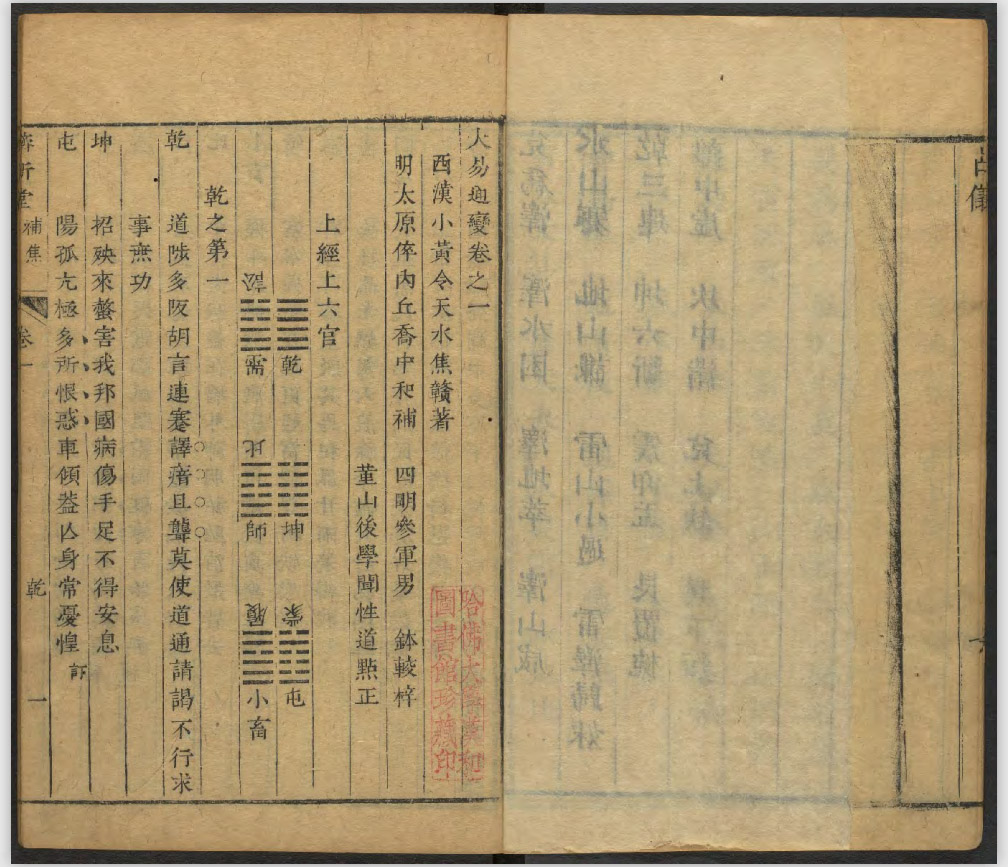 占儀
大易通變卷之一
西漢小黃令天水焦贛著
明太原倅內丘喬中和補 四明參軍男 鉢較梓
菫山後學聞性道㸃正
上經上六官
乾 坤 蒙 屯
訟 需 比 師 履 小畜
乾之第一
乾 道陟多阪胡言連蹇譯瘖且聾莫使道通請謁不行求
事無功
坤 招殃來螫害我邦國病傷手足不得安息
屯 陽孤亢極多所恨惑車傾葢亾身常憂惶
堂 補焦 卷一 乾 一
哈佛大學漢和
圖書館珍藏印